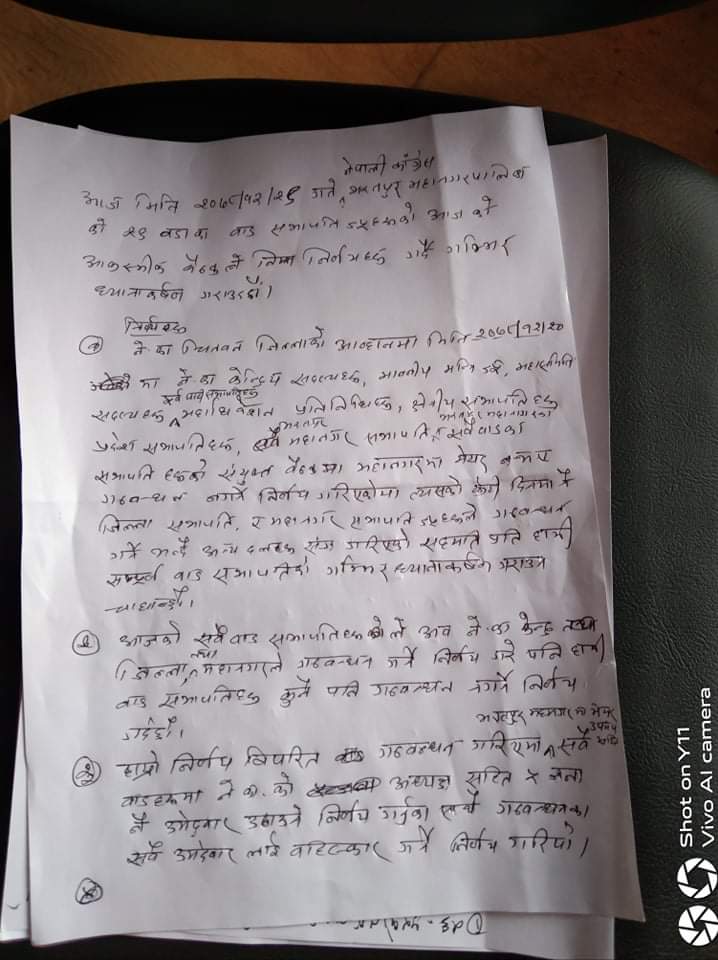 नेपाली काँग्रेस
आज मिति २०७८/१२/२९ गते भरतपुर महानगरपालिका
को २९ वडाका वाड सभापतिहरुको आज को
आकस्मीक बैठकले निम्न निर्णयहरु गर्दै गम्भिर
ध्यानाकर्षण गराउदछौं।
निर्णयहरु
(१) ने.का चितवन जिल्लाको आव्हानमा मिति २०७८/१२/२०
मा ने.का केन्द्रिय सदस्यहरु, महासमिति
सदस्यहरु महाधिवेशन प्रतिनिधिहरु, क्षेत्रीय सभापतिहरु
प्रदेश सभापतिहरु, भरतपुर महानगर सभापति, भरतपुर महानगरका सवै वाडका
सभापति हरुको संयुक्त बैठकमा महानगरमा मेयर
गठवन्धन नगर्ने निर्णय गरिएकोमा त्यसको दिनमा नै
जिल्ला सभापति, र महानगर सभापति ले गठवन्धन
गर्ने भन्दै अन्य दलहरु संग गरिएको सहमति प्रति हामी
सम्पूर्ण वाड सभापतिको गम्भिर ध्यानाकर्षण गराउन
चाहान्छौं।
(२) आजको सवै वाड सभापतिहरुले अव ने.का केन्द्र
जिल्ला, तथा महानगरले गठवन्धन गर्ने निर्णय गरे पनि हामी
वाड सभापतिहरु कुनै पनि गठवन्धन नगर्ने निर्णय
गर्दछौं।
(३) हाम्रो निर्णय विपरित गठवन्धन गरिएमा भरतपुर महानगर का मेयर उपमेयर सहित सवै
वाडहरुमा ने.का.को अध्यक्ष सहित ५ जना
नै उमेदवार उठाउने निर्णय गर्नुका साथै गठवन्धनका
सवै उमेदवार लाई वहिष्कार गर्ने निर्णय गरियो।
(४)
Shot on Y11
Vivo AI camera